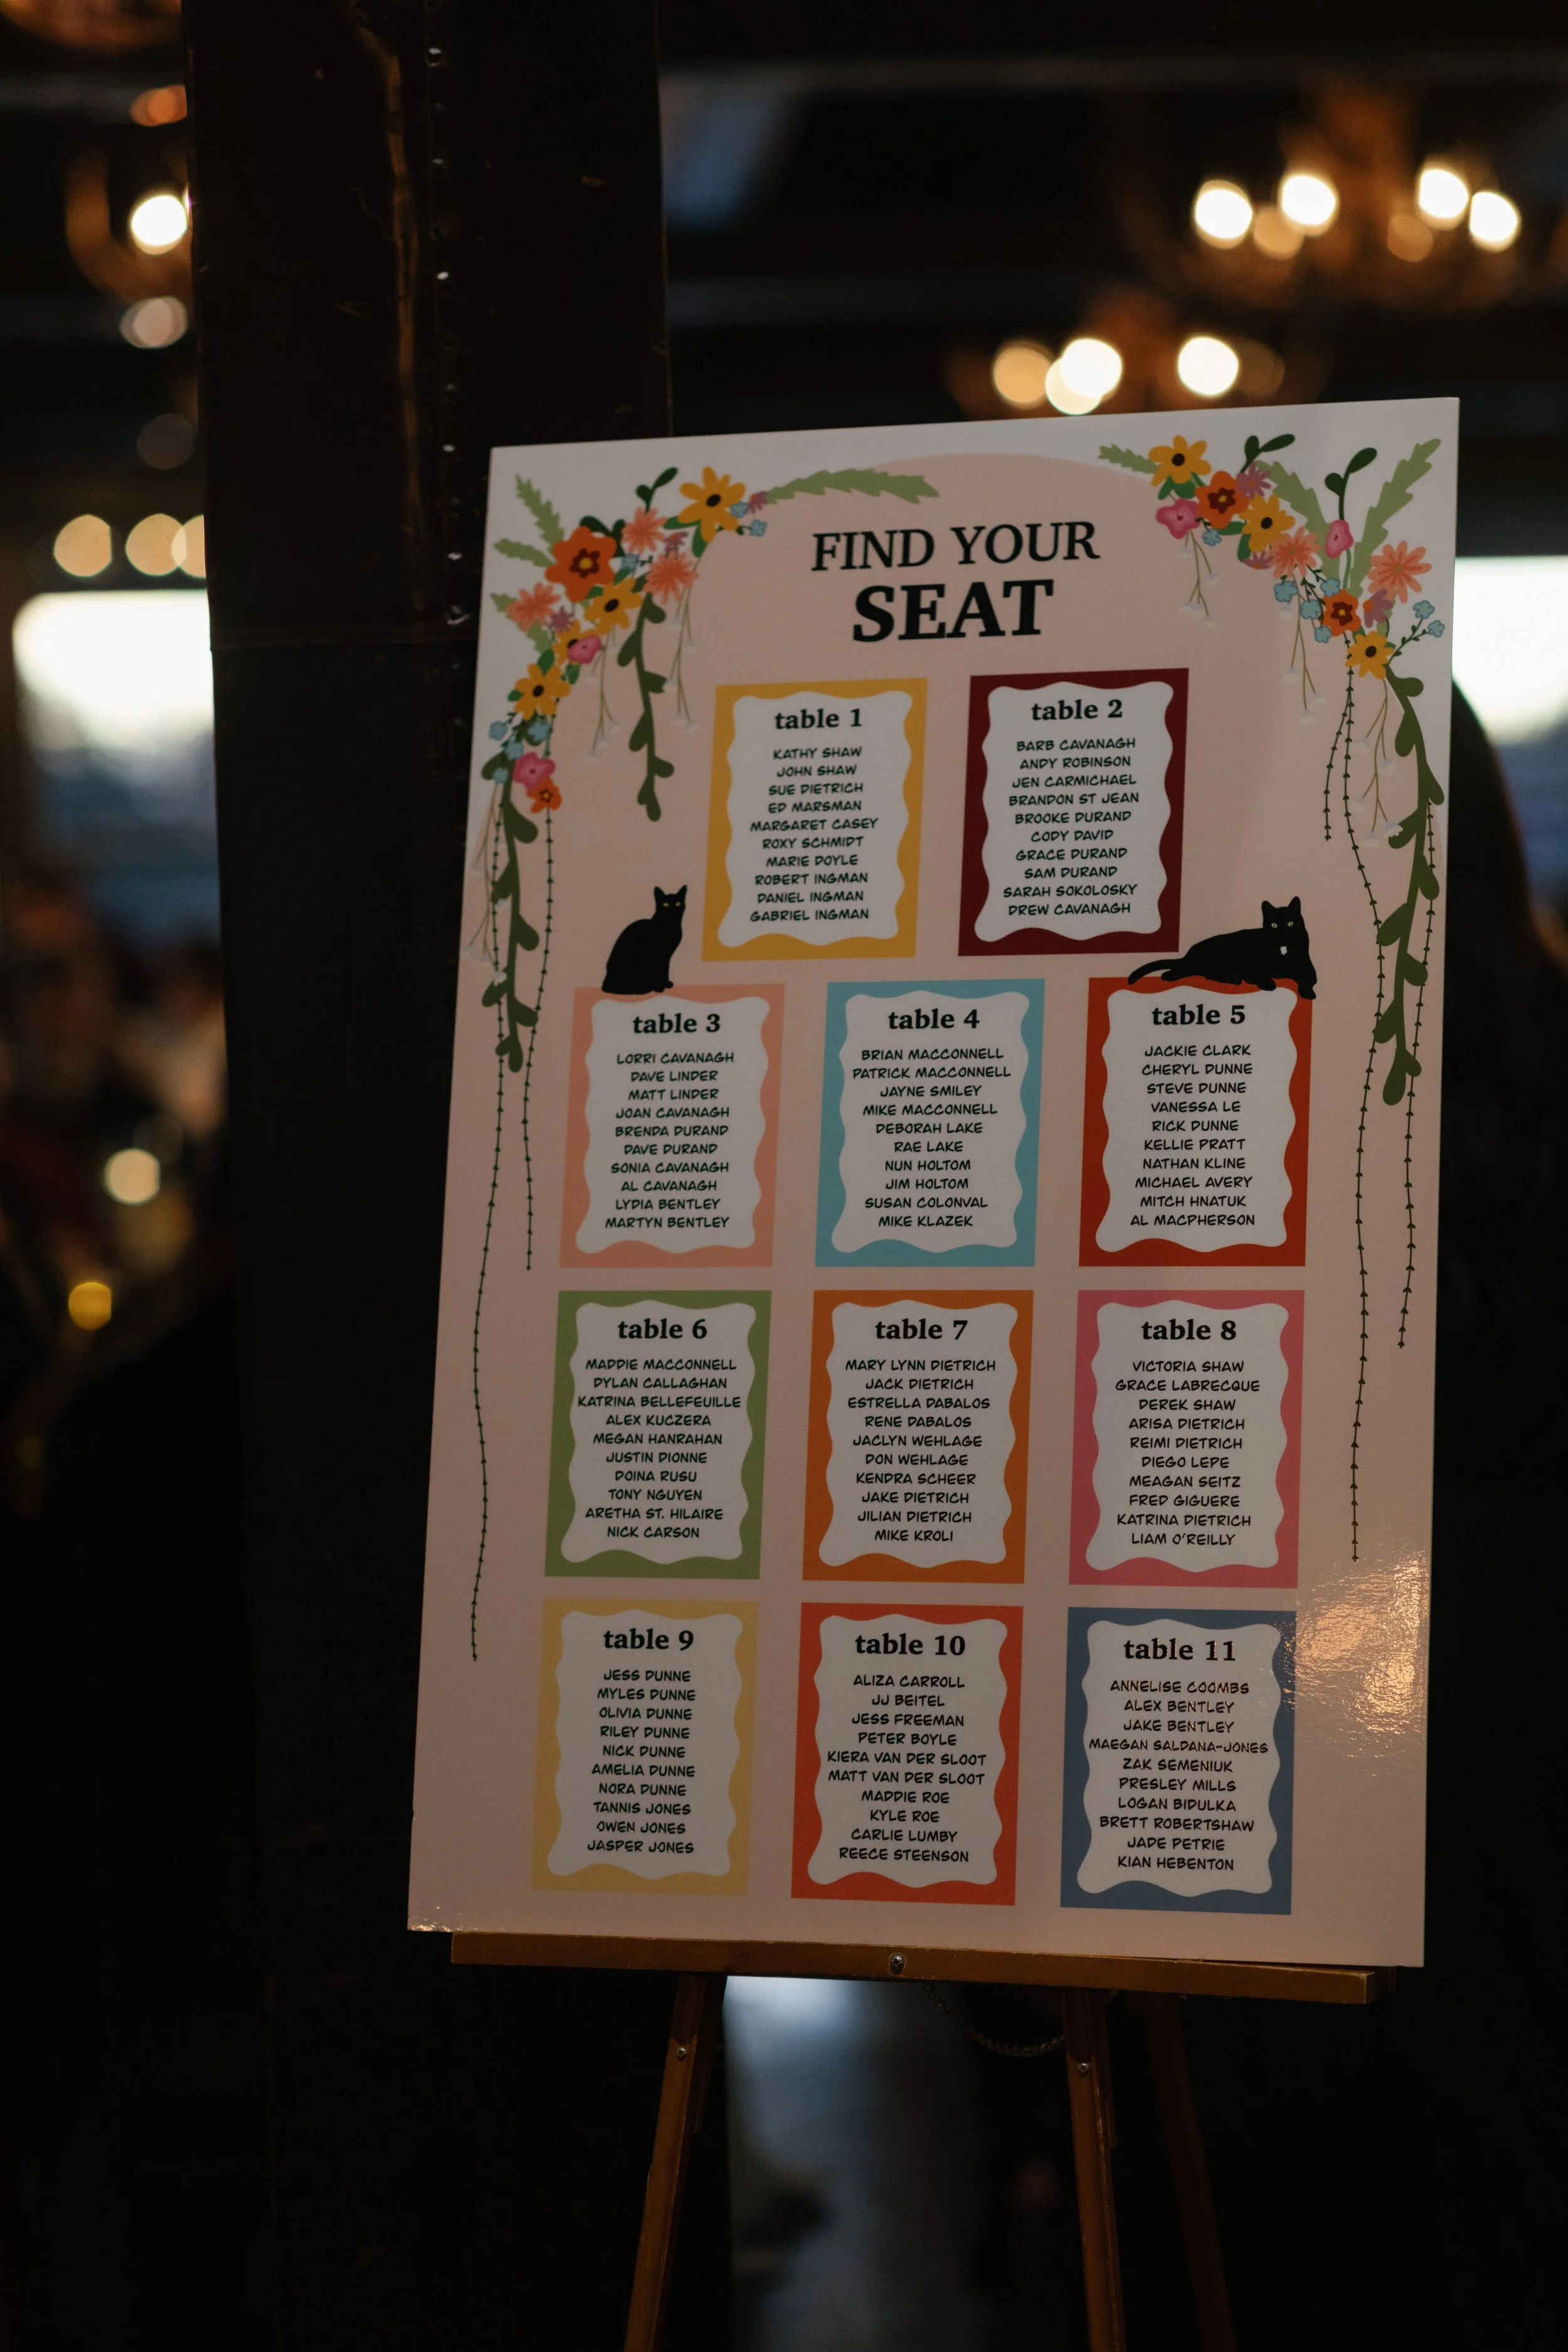 FIND YOUR
SEAT
table 1
KATHY SHAW
JOHN SHAW
SUE DIETRICH
ED MARSMAN
MARGARET CASEY
ROXY SCHMIDT
MARIE DOYLE
ROBERT INGMAN
DANIEL INGMAN
GABRIEL INGMAN
table 2
BARB CAVANAGH
ANDY ROBINSON
JEN CARMICHAEL
BRANDON ST JEAN
BROOKE DURAND
CODY DAVID
GRACE DURAND
SAM DURAND
SARAH SOKOLOSKY
DREW CAVANAGH
table 3
LORRI CAVANAGH
DAVE LINDER
MATT LINDER
JOAN CAVANAGH
BRENDA DURAND
DAVE DURAND
SONIA CAVANAGH
AL CAVANAGH
LYDIA BENTLEY
MARTYN BENTLEY
table 4
BRIAN MACCONNELL
PATRICK MACCONNELL
JAYNE SMILEY
MIKE MACCONNELL
DEBORAH LAKE
RAE LAKE
NUN HOLTOM
JIM HOLTOM
SUSAN COLONVAL
MIKE KLAZEK
table 5
JACKIE CLARK
CHERYL DUNNE
STEVE DUNNE
VANESSA LE
RICK DUNNE
KELLIE PRATT
NATHAN KLINE
MICHAEL AVERY
MITCH HNATUK
AL MACPHERSON
table 6
MADDIE MACCONNELL
DYLAN CALLAGHAN
KATRINA BELLEFEUILLE
ALEX KUCZERA
MEGAN HANRAHAN
JUSTIN DIONNE
DOINA RUSU
TONY NGUYEN
ARETHA ST. HILAIRE
NICK CARSON
table 7
MARY LYNN DIETRICH
JACK DIETRICH
ESTRELLA DABALOS
RENE DABALOS
JACLYN WEHLAGE
DON WEHLAGE
KENDRA SCHEER
JAKE DIETRICH
JILIAN DIETRICH
MIKE KROLI
table 8
VICTORIA SHAW
GRACE LABRECQUE
DEREK SHAW
ARISA DIETRICH
REIMI DIETRICH
DIEGO LEPE
MEAGAN SEITZ
FRED GIGUERE
KATRINA DIETRICH
LIAM O'REILLY
table 9
JESS DUNNE
MYLES DUNNE
OLIVIA DUNNE
RILEY DUNNE
NICK DUNNE
AMELIA DUNNE
NORA DUNNE
TANNIS JONES
OWEN JONES
JASPER JONES
table 10
ALIZA CARROLL
JJ BEITEL
JESS FREEMAN
PETER BOYLE
KIERA VAN DER SLOOT
MATT VAN DER SLOOT
MADDIE ROE
KYLE ROE
CARLIE LUMBY
REECE STEENSON
table 11
ANNELISE COOMBS
ALEX BENTLEY
JAKE BENTLEY
MAEGAN SALDANA-JONES
ZAK SEMENIUK
PRESLEY MILLS
LOGAN BIDULKA
BRETT ROBERTSHAW
JADE PETRIE
KIAN HEBENTON